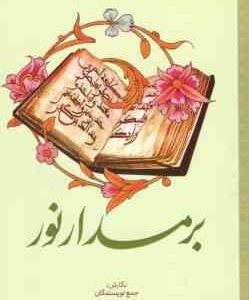 بر مدار نور
نگارش:
جمع نویسندگان